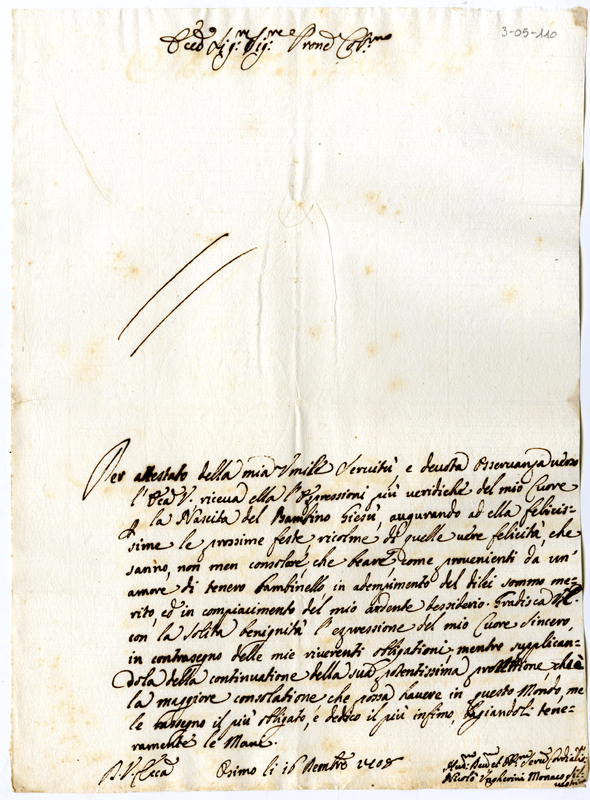 3-05-110
Ecc.za Sig.re Sig.re Prone Col.mo
Per attestato della mia Umile Servitù, e devota Osservanza verso
l'Ecc.a V. riceva ella l'espressioni più veridiche del mio Cuore
P la Nascita del Bambino Giesù, augurando ad ella felicis-
sime le prossime feste ricolme di quelle vere felicità, che
sanno, non men consolare che beare, come provenienti da un'
amore di tenero bambinello, in adempimento del di lei sommo me-
rito, ed in compiacimento del mio ardente desiderio. Gradisca
con la solita benignità l'espressione del mio Cuore sincero,
in contrasegno delle mie riverenti obligationi, mentre supplican-
dola della continuatione della sua potentissima protettione ch'è
la maggiore consolatione che possa havere in questo Mondo, me
le rassegno il più obligato, e dedico il più infimo, bagiandoli tene-
ramente le Mani.
D. V. Ecc.a Osimo li 16 Dembre 1708
Nicolò Ungherini Monaco Sil-
vestri